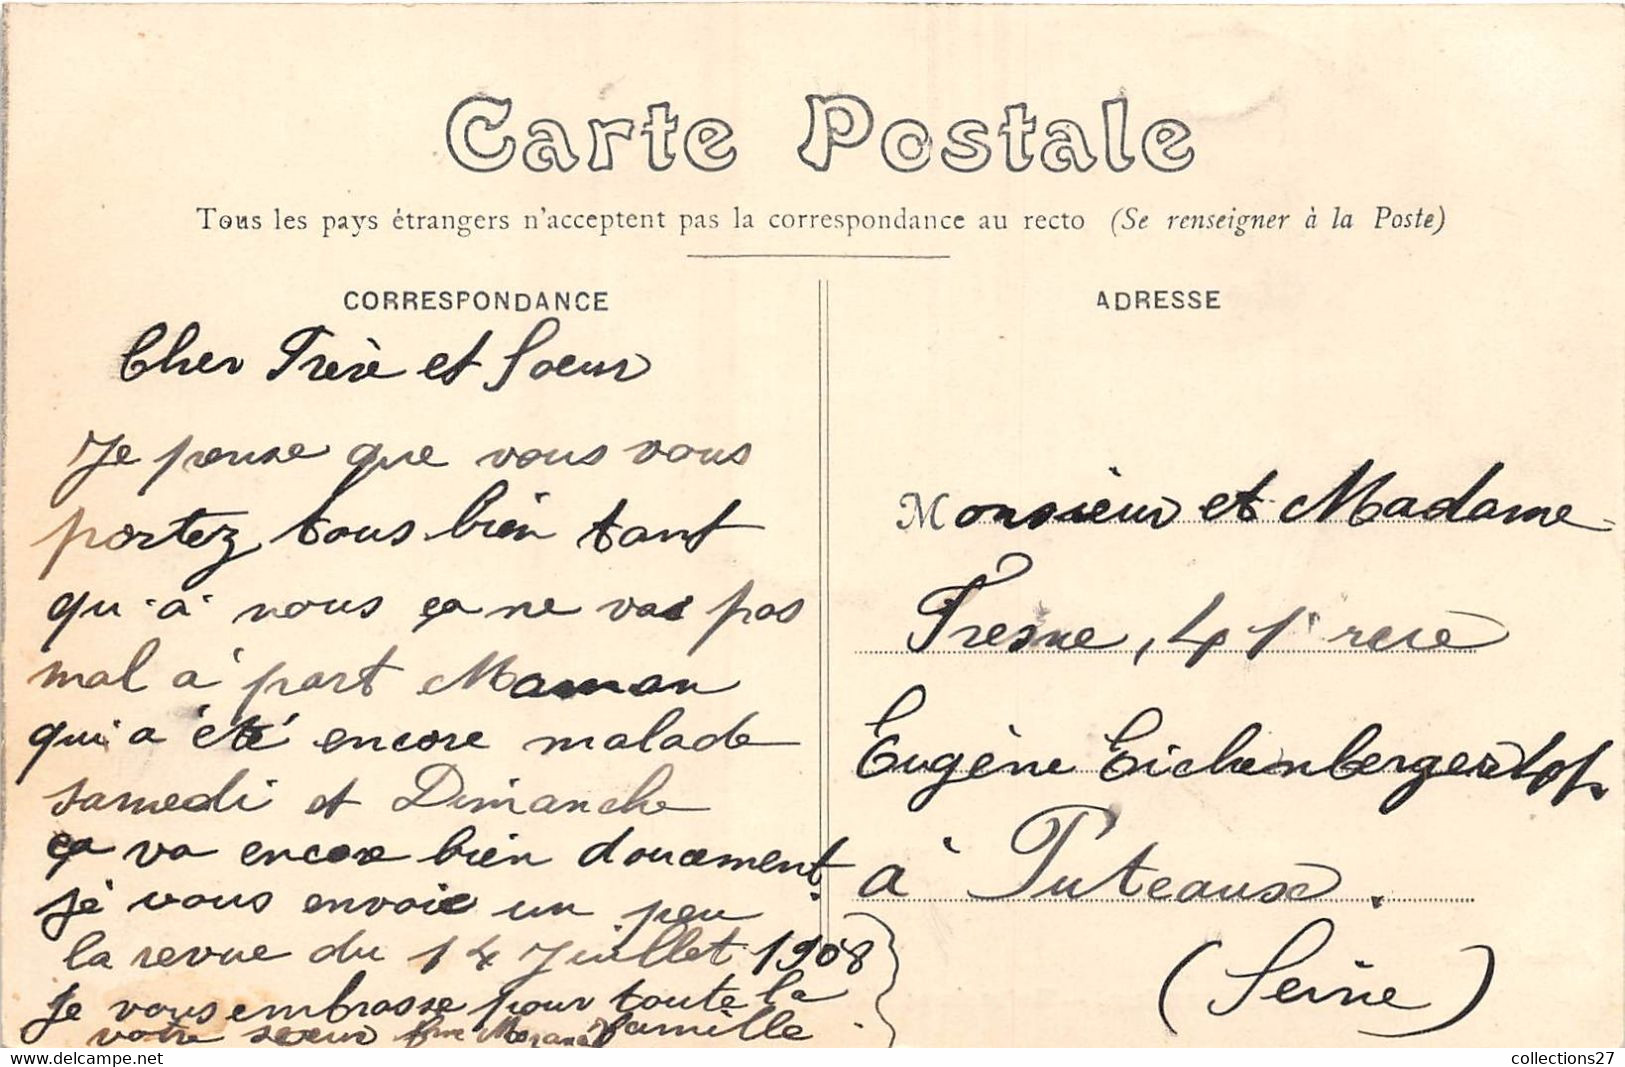 Carte Postale
Tous les pays étrangers n'acceptent pas la correspondance au recto (Se renseigner à la Poste)
CORRESPONDANCE
Cher Frère et Soeur
Je pense que vous vous
portez tous bien tant
qu'à nous ça ne vas pas
mal à part Maman
qui a été encore malade
samedi et Dimanche
ça va encore bien doucement.
je vous envoie un peu
la revue du 14 Juillet 1908
Je vous embrasse pour toute la
famille
votre soeur
ADRESSE
Monsieur et Madame
Fresne, 41 rue
Eugène Eichenberger
à Puteaux.
(Seine)
collections27
http://www.delcampe.net